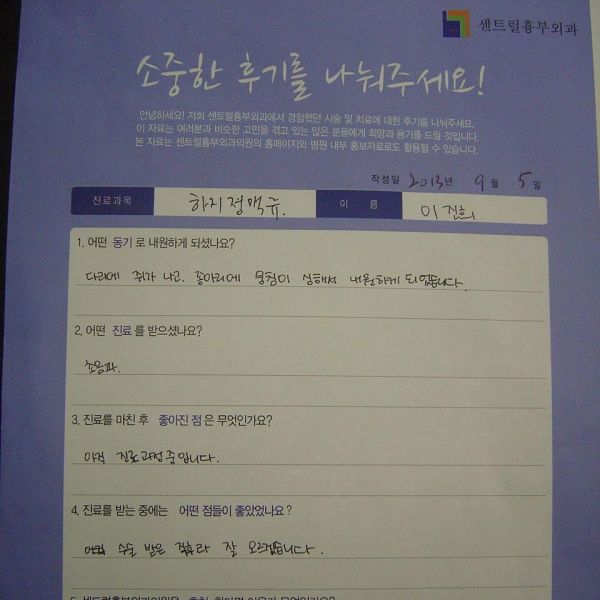 센트럴흉부외과
소중한 후기를 나눠주세요!
안녕하세요! 저희 센트럴흉부외과에서 경험했던 시술 및 치료에 대한 후기를 나눠주세요.
이 자료는 여러분과 비슷한 고민을 겪고 있는 많은 분들에게 희망과 용기를 드릴 것입니다.
본 자료는 센트럴흉부외과의원의 홈페이지와 병원 내부 홍보자료로도 활용될 수 있습니다.
작성일 2013년 9월 5일
진료과목 하지정맥류. 이 름 이진희
1. 어떤 동기로 내원하게 되셨나요?
다리에 쥐가 나고. 종아리에 뭉침이 심해서 내원하게 되었습니다.
2. 어떤 진료를 받으셨나요?
초음파.
3. 진료를 마친 후 좋아진 점은 무엇인가요?
아직 진료과정중입니다.
4. 진료를 받는 중에는 어떤 점들이 좋았었나요?
수술 받은 직후라 잘 모르겠습니다.